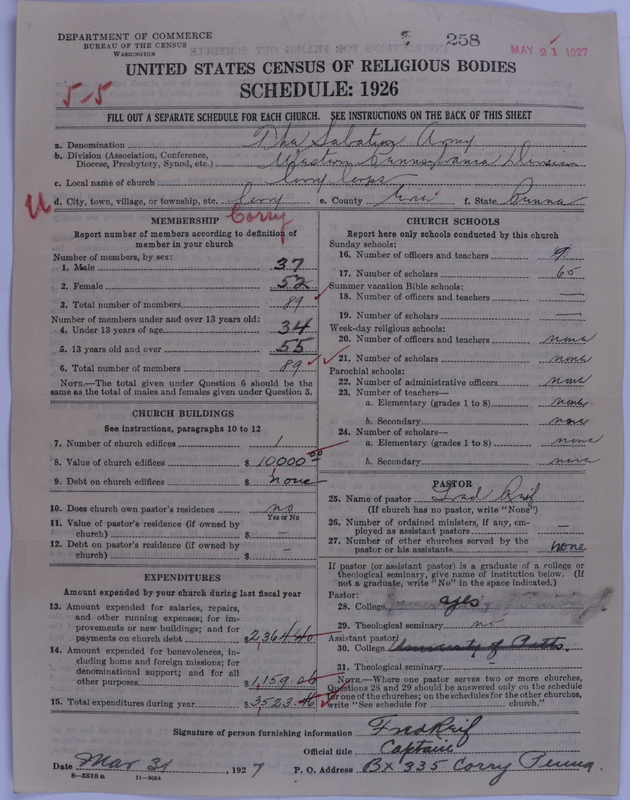 DEPARTMENT OF COMMERCE
BUREAU OF THE CENSUS
WASHINGTON
258
MAY 21 1927
UNITED STATES CENSUS OF RELIGIOUS BODIES
SCHEDULE: 1926
5-5
FILL OUT A SEPARATE SCHEDULE FOR EACH CHURCH. SEE INSTRUCTIONS ON THE BACK OF THIS SHEET
a. Denomination The Salvation Army
b. Division (Association, Conference, Diocese, Presbytery, Synod, etc.) Western Pennsylvania Division
c. Local name of church Corry Corps
d. City, town, village, or township, etc. Corry e. County Erie f. State Penna
Corry
MEMBERSHIP
Report number of members according to definition of
member in your church
Number of members, by sex:
1. Male 37
2. Female 52
3. Total number of members 89
Number of members under and over 13 years old:
4. Under 13 years of age 34
5. 13 years old and over 55
6. Total number of members 89
NOTE.—The total given under Question 6 should be
same as the total of males and females given under Question 3.
CHURCH BUILDINGS
See instructions, paragraphs 10 to 12
7. Number of church edifices 1
8. Value of church edifices $ 10000.00
9. Debt on church edifices $ none
10. Does church own pastor's residence? no
Yes or No
11. Value of pastor's residence (if owned by
church) $ —
12. Debt on pastor's residence (if owned by
church) $ —
EXPENDITURES
Amount expended by your church during last fiscal year
13. Amount expended for salaries, repairs,
and other running expenses; for im-
provements or new buildings; and for
payments on church debt $ 2,364.40
14. Amount expended for benevolences, in-
cluding home and foreign missions; for
denominational support; and for all
other purposes $ 1,159.06
15. Total expenditures during year $ 3523.46
CHURCH SCHOOLS
Report here only schools conducted by this church
Sunday schools:
16. Number of officers and teachers 9
17. Number of scholars 65
Summer vacation Bible schools:
18. Number of officers and teachers —
19. Number of scholars —
Week-day religious schools:
20. Number of officers and teachers none
21. Number of scholars none
Parochial schools:
22. Number of administrative officers none
23. Number of teachers—
a. Elementary (grades 1 to 8) none
b. Secondary none
24. Number of scholars—
a. Elementary (grades 1 to 8) none
b. Secondary none
PASTOR
25. Name of pastor Fred Reif
(If church has no pastor, write "None")
26. Number of ordained ministers, if any, em-
ployed as assistant pastors —
27. Number of other churches served by the
pastor or his assistants none
If pastor (or assistant pastor) is a graduate of a college or
theological seminary, give name of institution below. (If
not a graduate, write "No" in the space indicated.)
Pastor:
28. College yes
29. Theological seminary no
Assistant pastor:
30. College University of
31. Theological seminary —
NOTE.—Where one pastor serves two or more churches,
Questions 28 and 29 should be answered only on the schedule
for one of the churches; on the schedules for the other churches,
write "See schedule for church."
Signature of person furnishing information Fred Reif
Official title Captain
Date Mar 31, 1927 P. O. Address Bx 335 Corry Penna.
8-5518a 11-9054